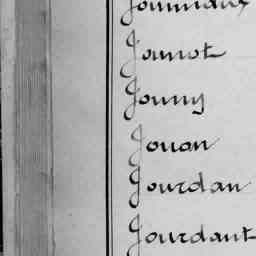 Jounot
Jouny
Jouon
Jourdan
Jourdant